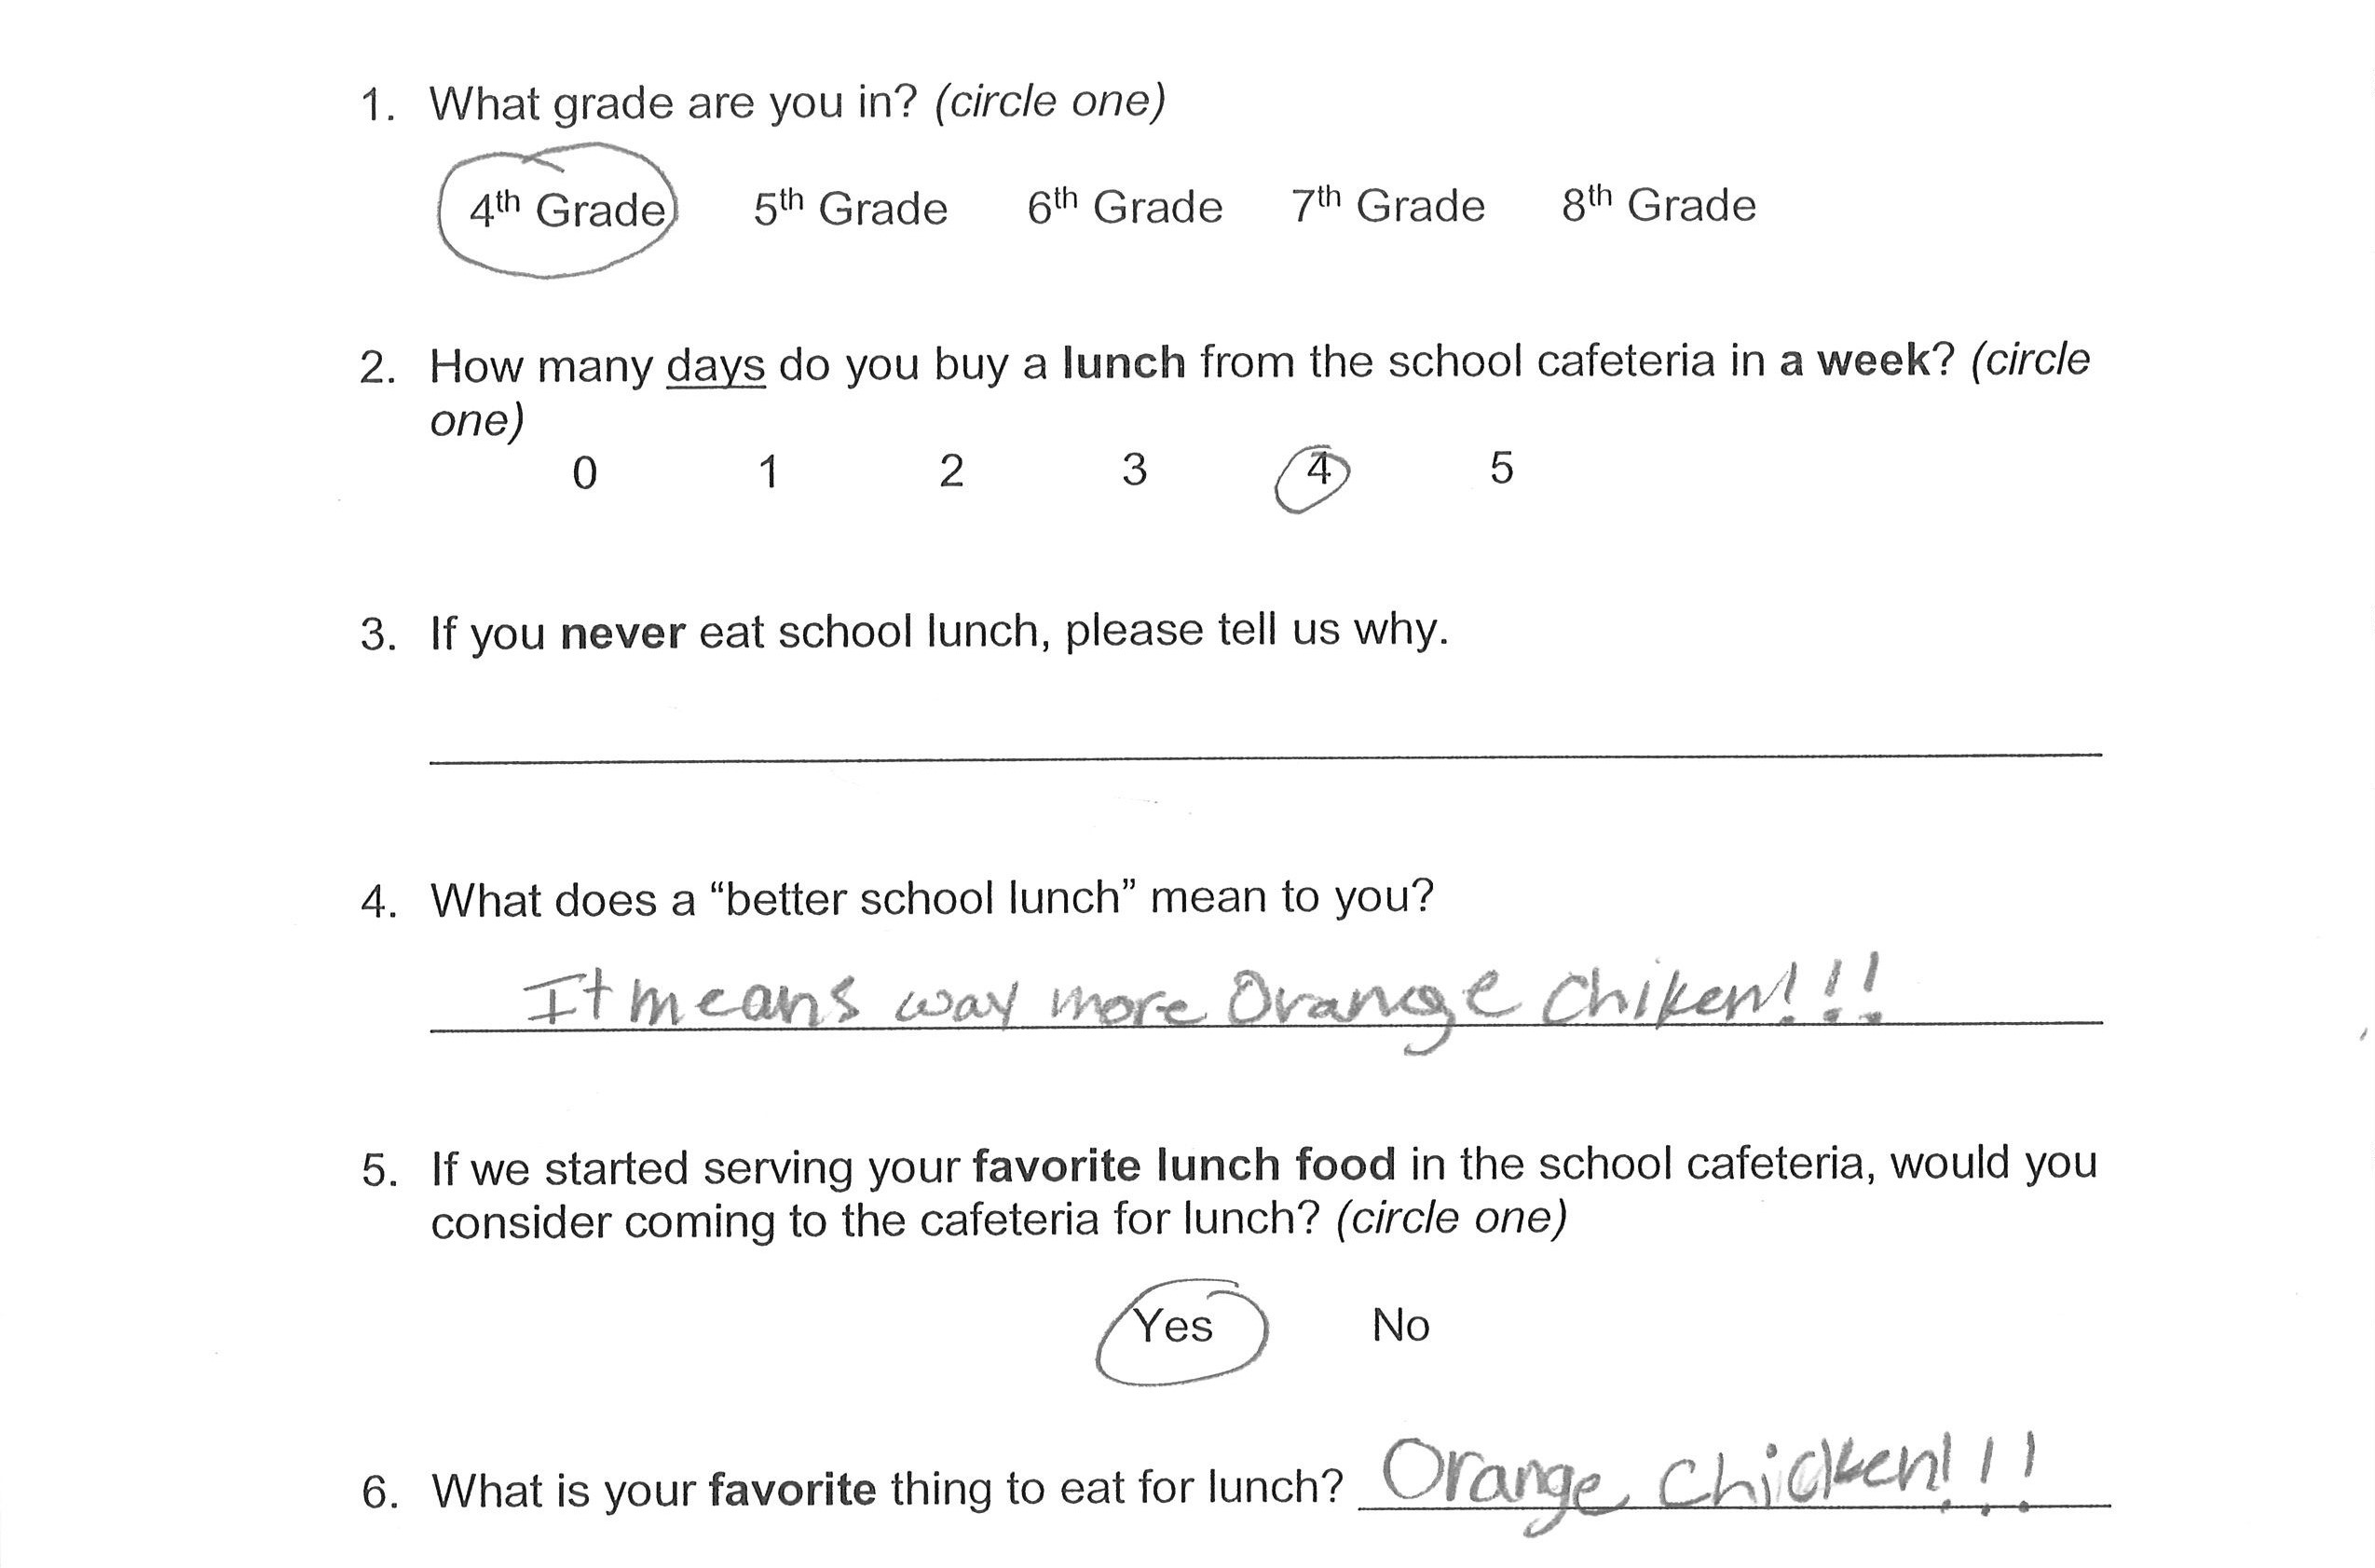 1. What grade are you in? (circle one)
4th Grade 5th Grade 6th Grade 7th Grade 8th Grade
2. How many days do you buy a lunch from the school cafeteria in a week? (circle
one)
0 1 2 3 4 5
3. If you never eat school lunch, please tell us why.
4. What does a “better school lunch” mean to you?
It means way more Orange Chiken!!!
5. If we started serving your favorite lunch food in the school cafeteria, would you
consider coming to the cafeteria for lunch? (circle one)
Yes No
6. What is your favorite thing to eat for lunch? Orange Chicken!!!